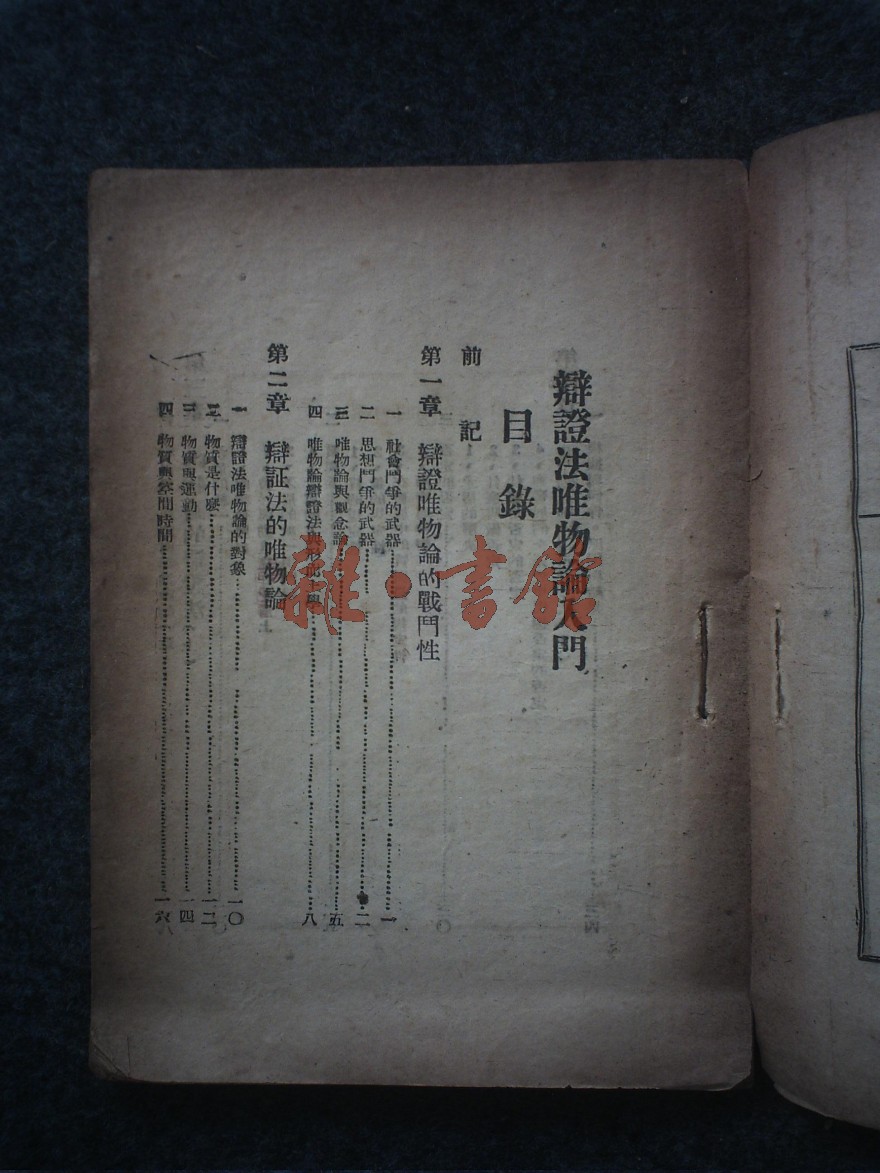 辯證法唯物論入門
目錄
前記
第一章 辯證唯物論的戰鬥性
一 社會鬥爭的武器 一
二 思想鬥爭的武器 二
三 唯物論與觀念論 五
四 唯物論辯證法與形而上學 八
第二章 辯証法的唯物論
一 辯證法唯物論的對象 一〇
二 物質是什麼 一二
三 物質與運動 一四
四 物質與空間時間 一六
雜·書館